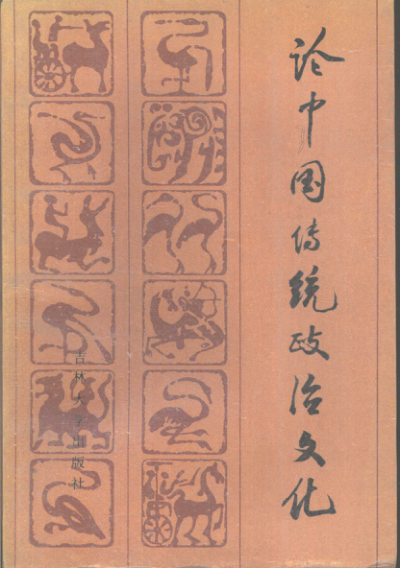 论中国传统政治文化
吉林大学出版社